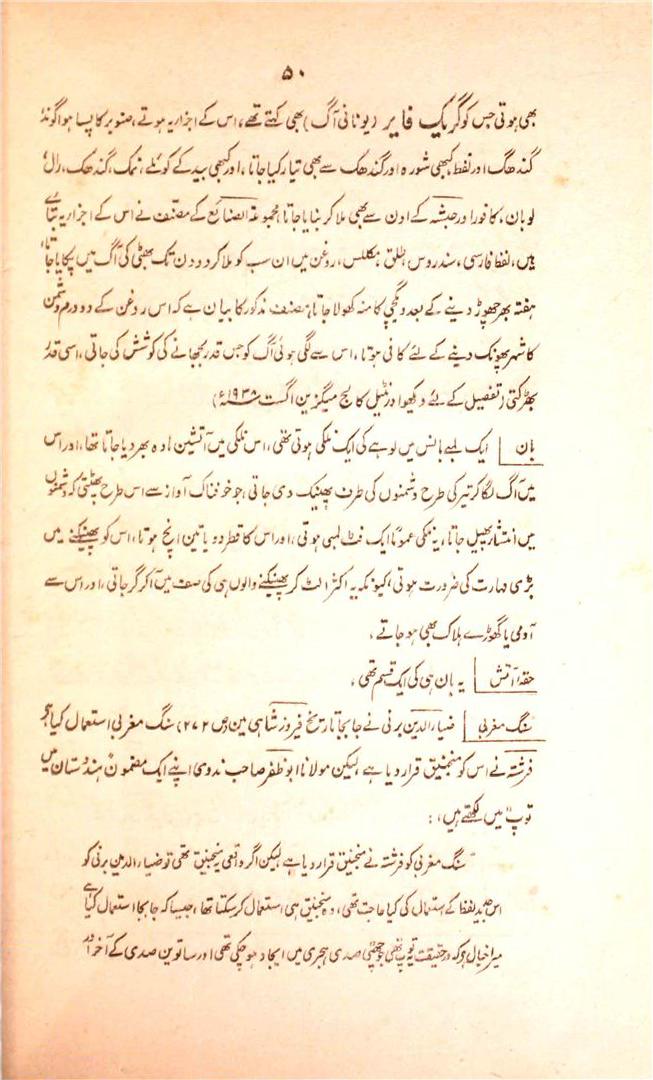 ۵۰
بھی ہوتی جس کو گریک فایر (یونانی آگ) بھی کہتے تھے، اس کے اجزاء یہ ہوتے، صنوبر کا پسا ہوا گوند
گندھک اور نفط، کبھی شورہ اور گندھک سے بھی تیار کیا جاتا، اور کبھی بید کے کوئلے، نمک، گندھک، رال،
لوبان، کافور اور حبشہ کے اون سے بھی ملا کر بنایا جاتا، مجموعۃ الصنایع کے مصنف نے اس کے اجزاء یہ بتائے
ہیں، نفط فارسی، سندروس، طلق، روغن میں ان سب کو ملا کر دو دن تک بھٹی کی آگ میں پکایا جاتا،
ہفتہ بھر چھوڑ دینے کے بعد دیگچی کا منہ کھولا جاتا، مصنف مذکور کا بیان ہے کہ اس روغن کے دو درم دشمن
کا شہر پھونک دینے کے لئے کافی ہوتا، اس سے لگی ہوئی آگ کو جس قدر بجھانے کی کوشش کی جاتی، اسی قدر
بھڑکتی (تفصیل کے لئے دیکھو اورنٹیل کالج میگزین اگست ۱۹۳۸ء)
بان ایک لمبے بانس میں لوہے کی ایک نلکی ہوتی تھی، اس نلکی میں آتشین مادہ بھر دیا جاتا تھا، اور اس
میں آگ لگا کر تیر کی طرح دشمنوں کی طرف پھینک دی جاتی، جو خوفناک آواز سے اس طرح پھٹتی کہ دشمنوں
میں انتشار پھیل جاتا، یہ نلکی عموماً ایک فٹ لمبی ہوتی، اور اس کا قطر دو یا تین انچ ہوتا، اس کو پھینکنے میں
بڑی مہارت کی ضرورت ہوتی، کیونکہ یہ اکثر الٹ کر پھینکنے والوں ہی کی صف میں آ کر گر جاتی، اور اس سے
آدمی یا گھوڑے ہلاک بھی ہو جاتے،
حقۂ آتش یہ بان ہی کی ایک قسم تھی،
سنگ مغربی ضیاء الدین برنی نے جا بجا تاریخ فیروز شاہی مین (ص ۲۷۲) سنگ مغربی استعمال کیا ہے،
فرشتہ نے اس کو منجنیق قرار دیا ہے، لیکن مولانا ابو ظفر صاحب ندوی اپنے ایک مضمون ہندوستان میں
توپ" میں لکھتے ہیں،:
"سنگ مغربی کو فرشتہ نے منجنیق قرار دیا ہے لیکن اگر واقعی یہ منجنیق تھی تو ضیاء الدین برنی کو
اس جدید لفظ کے استعمال کی کیا حاجت تھی، وہ منجنیق ہی استعمال کر سکتا تھا، جیسا کہ جا بجا استعمال کیا ہے
میرا خیال ہو کہ درحقیقت یہ توپ تھی جو چھٹی صدی ہجری میں ایجاد ہو چکی تھی اور ساتوین صدی کے آخر اور